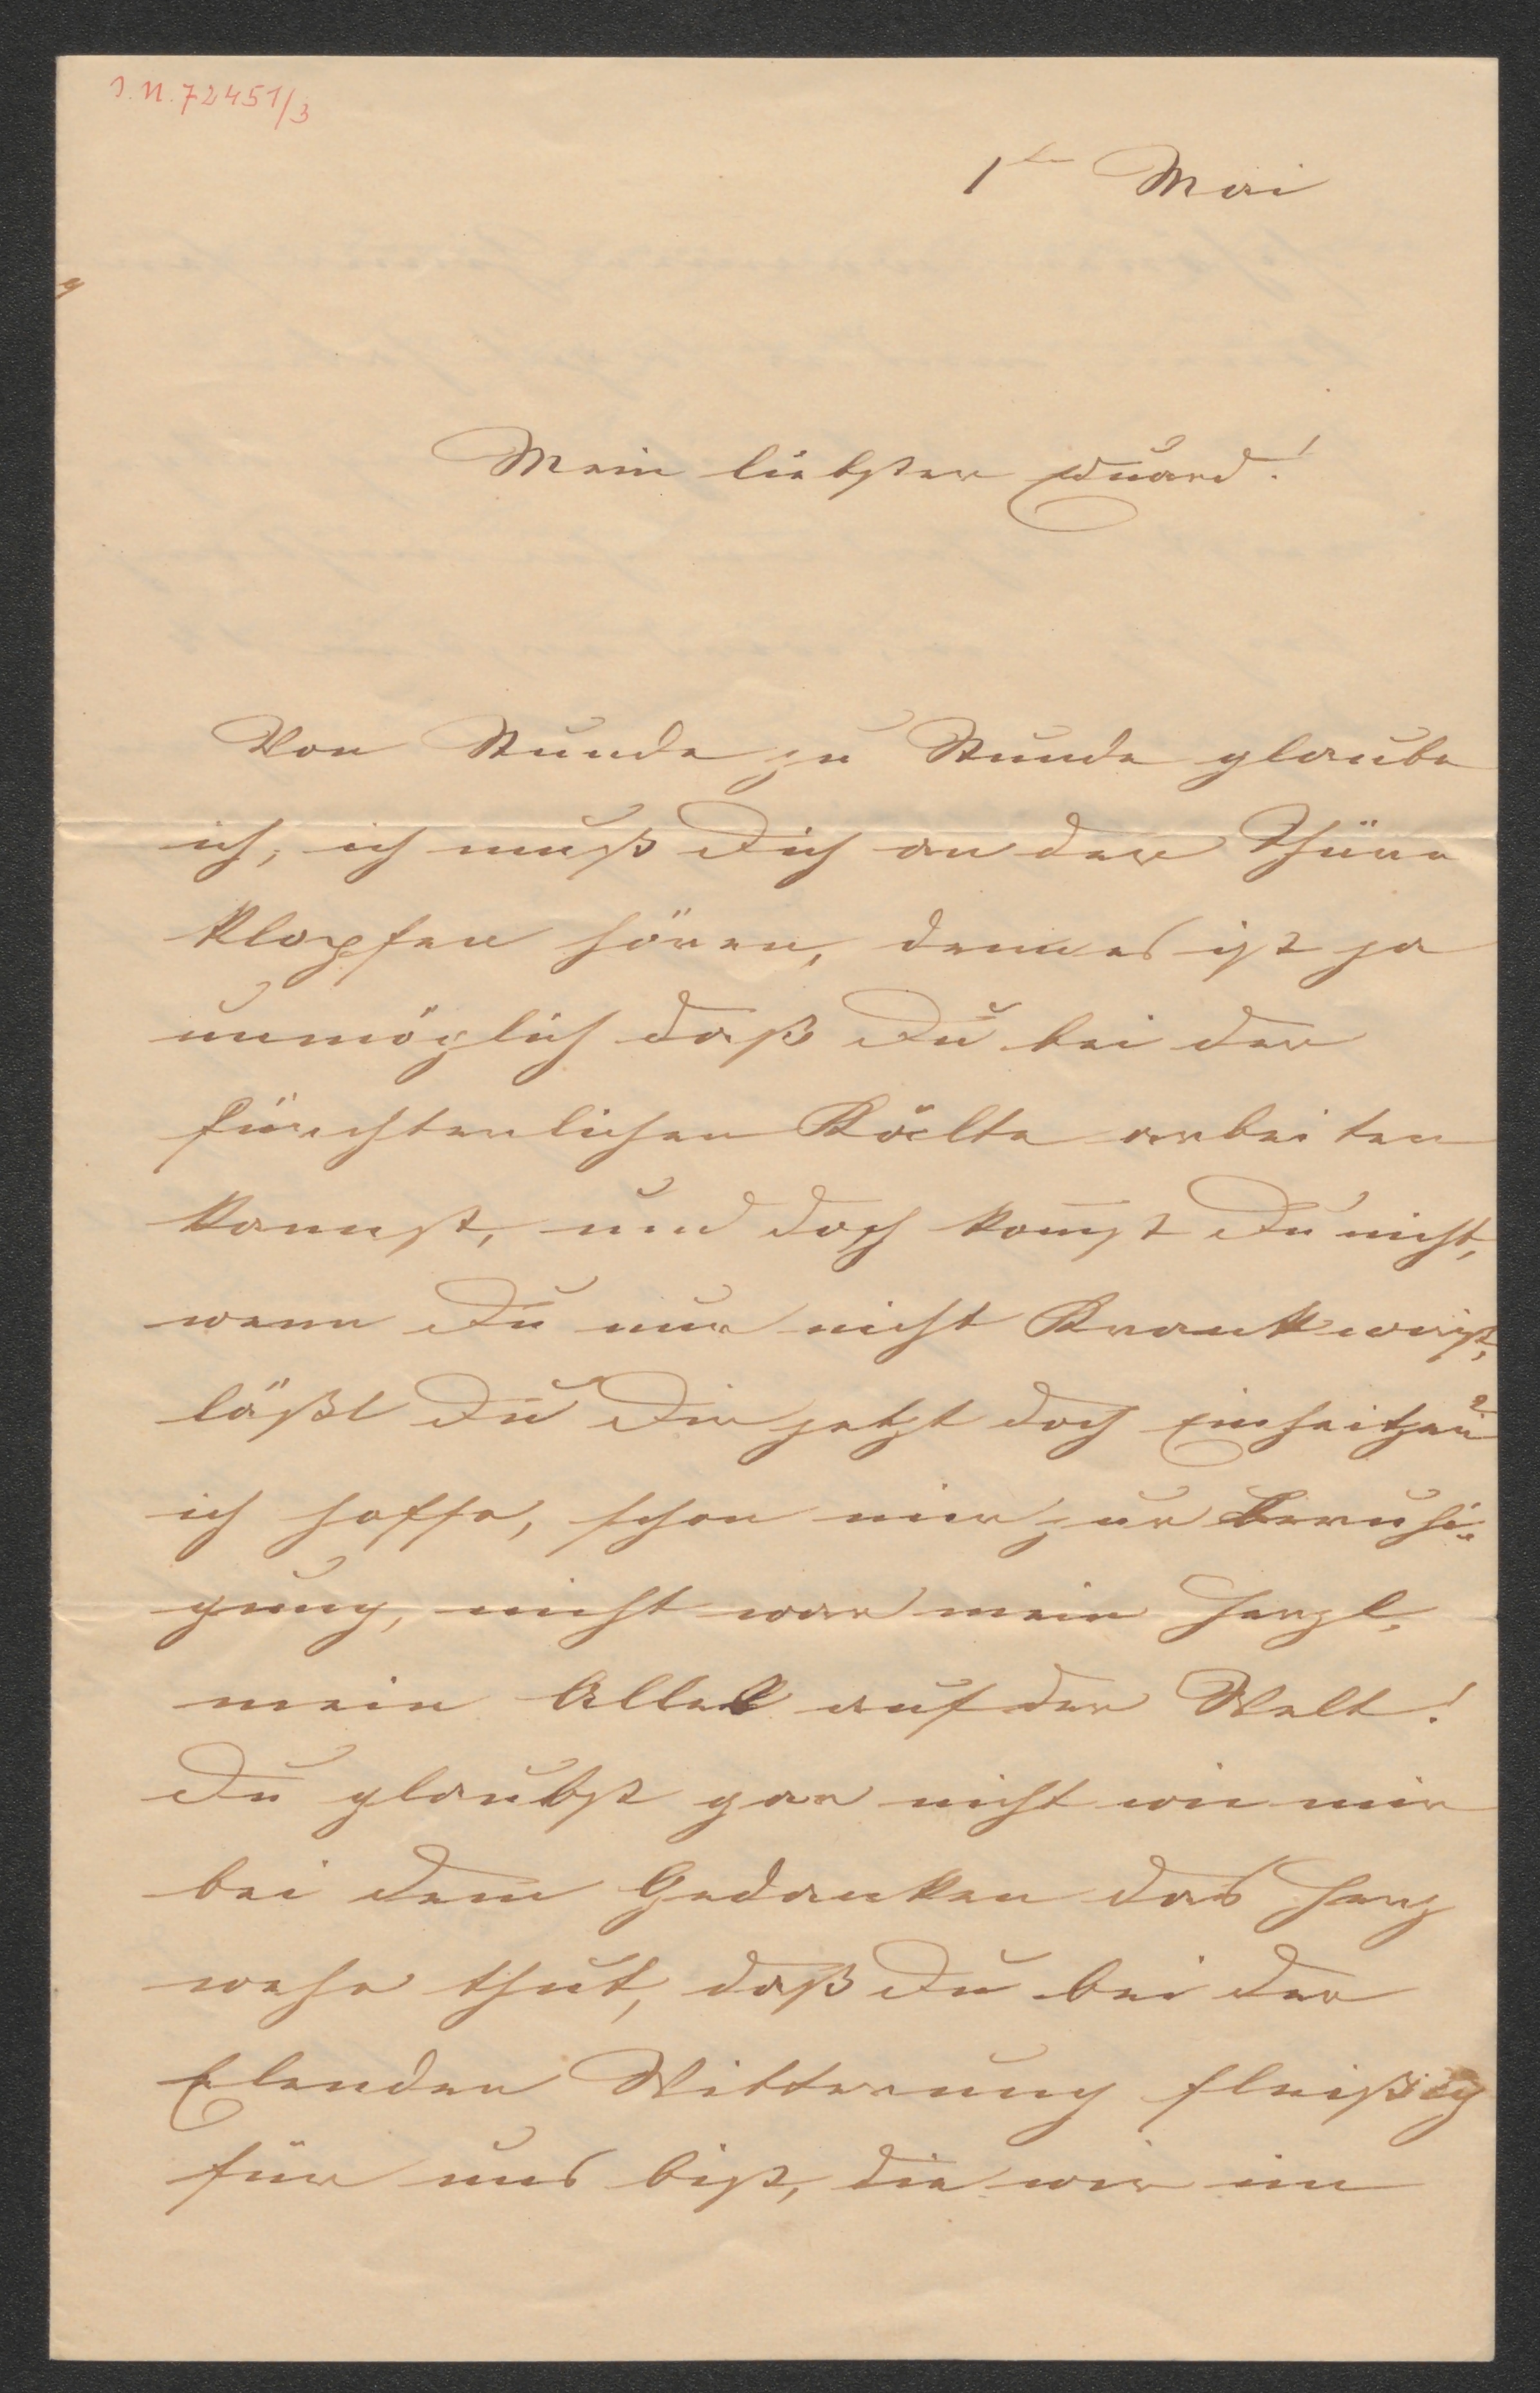 I.N. 72451/3
1ten Mai
Mein liebster Eduard!
Von Stunde zu Stunde glaube
ich, ich muß Dich an der Thüre
klopfen hören, denn es ist ja
unmöglich daß Du bei der
fürchterlichen Kälte arbeiten
kannst, und doch kom̅st Du nicht,
wenn Du nur nicht Krank wirst,
läßt Du Dir jetzt doch Einheitzen?
ich hoffe, schon mir zur Beruhi-
gung, nicht war mein Herzl,
mein Alles auf der Welt!
Du glaubst gar nicht wie mir
bei dem Gedanken das Herz
wehe thut, daß Du bei der
Elenden Witterung fleißig
für uns bist, die wir im